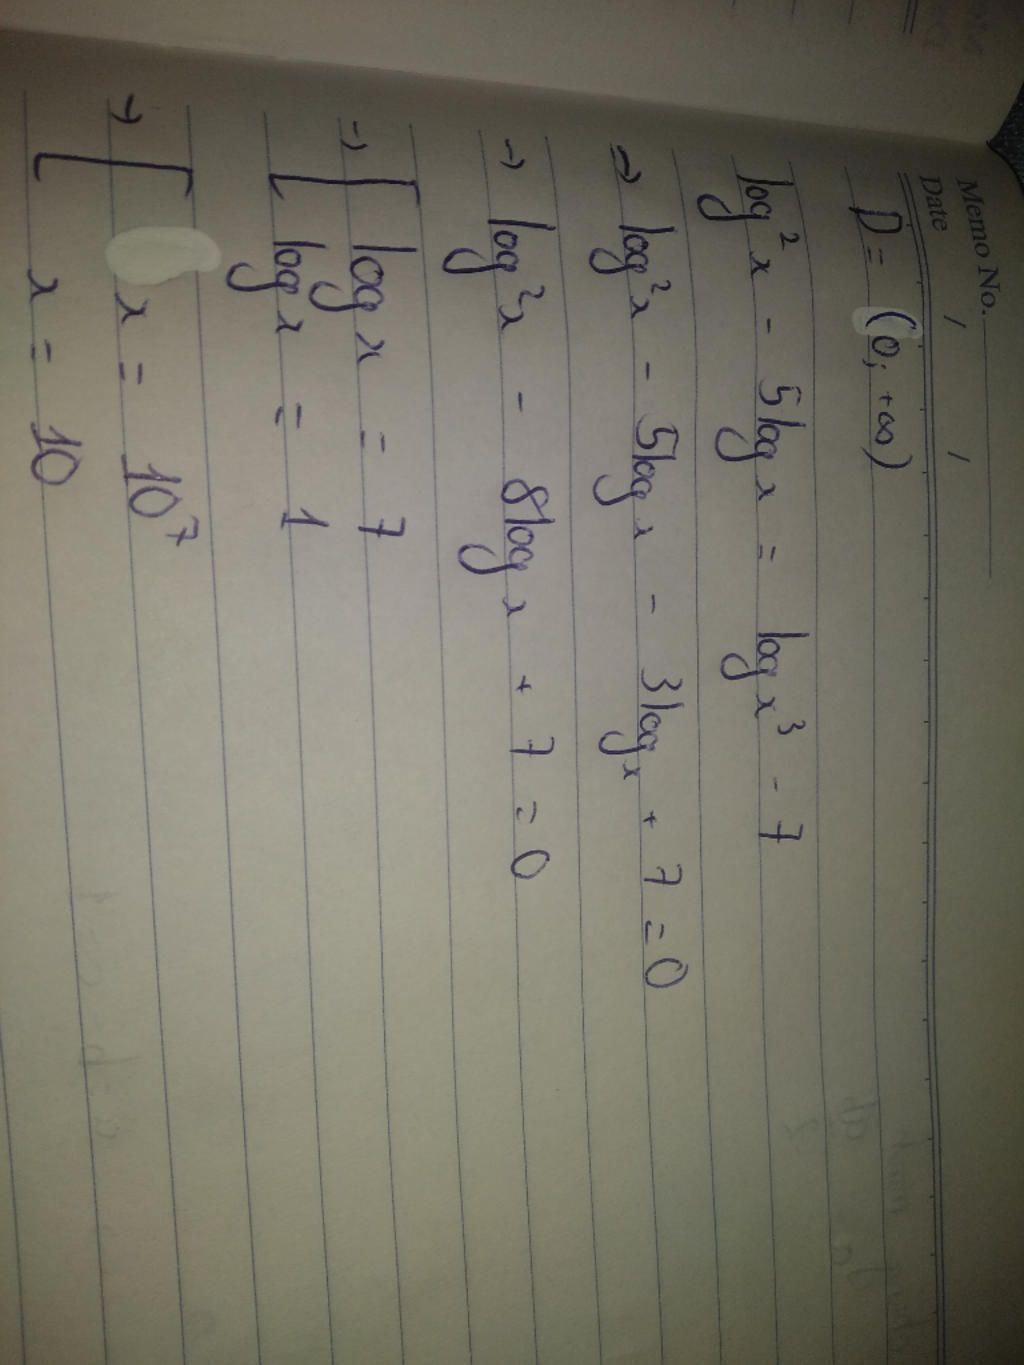 Memo No.
Date / /
D = (0; +∞)
log²x - 5logx = logx³ - 7
→ log²x - 5logx - 3logx + 7 = 0
→ log²x - 8logx + 7 = 0
→ [ logx = 7
[ logx = 1
→ [ x = 10⁷
[ x = 10